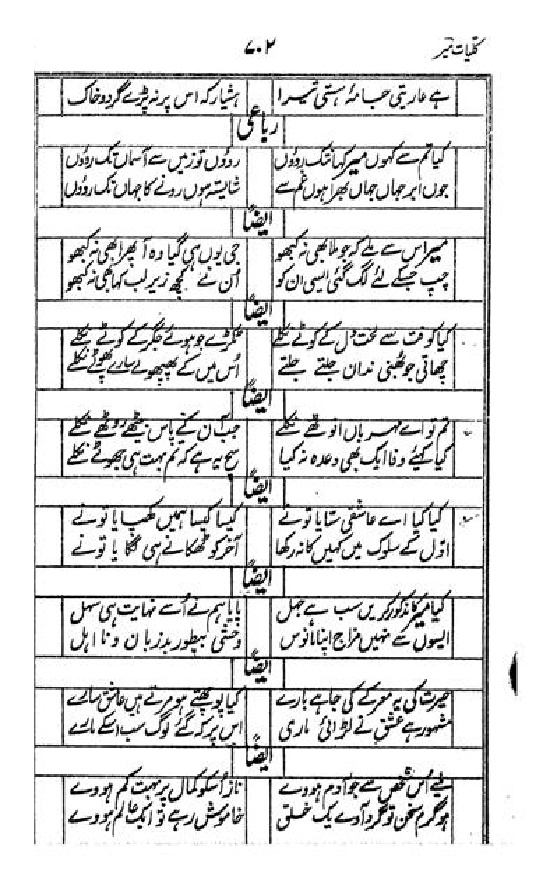 کلیات میر
۷۰۲
ہے عاریتی جامۂ ہستی تیرا ہشیار کہ اس پر نہ پڑے گرد و خاک
رباعی
کیا تم سے کہوں میر کہاں تک روؤں روؤں تو زمیں سے آسماں تک روؤں
جوں ابر جہاں جہاں بھرا ہوں غم سے شایستہ ہوں رونے کا جہاں تک روؤں
ایضاً
میر اس سے ملے کہ جو ملا بھی نہ کبھو جی یوں ہی گیا وہ آ پھرا بھی نہ کبھو
چپ جسکے لئے لگ گئی ایسی ان کو اُن نے کچھ زیر لب کہا بھی نہ کبھو
ایضاً
کیا کوفت سے لخت دل کے کوٹے نکلے ٹکڑے جو ہوئے جگر کے کوٹے نکلے
چھاتی جو پھٹی ندان جلتے جلتے اُس میں کے پھپھولے سارے پھوٹے نکلے
ایضاً
تم تو اے مہرباں انوٹھے نکلے جب آن کے پاس بیٹھے روٹھے نکلے
کیا کہئے وفا ایک بھی وعدہ نہ کیا سچ یہ ہے کہ تم بہت ہی جھوٹے نکلے
ایضاً
کیا کیا اے عاشقی ستایا تونے کیسا کیسا ہمیں کھپایا تونے
اوّل کے سلوک میں کہیں کا نہ رکھا آخر کو ٹھکانے ہی لگایا تونے
ایضاً
کیا میر کا مذکور کریں سب ہے جہل پایا ہم نے اُسے نہایت ہی سہل
ایسوں سے نہیں مزاج اپنا مانوس وحشی بیطور بدزبان و نا اہل
ایضاً
حیرت کی یہ معرکے کی جا ہے بارے کیا پوچھتے ہو مرتے ہیں عاشق سارے
مشہور ہے عشق نے لڑائی ماری اس پر کہ گئے لوگ سب اسکے مارے
ایضاً
ملیے اُس شخص سے جو آدم ہووے ناز اُسکو کمال پر بہت کم ہووے
ہو گرم سخن تو گرد آوے یک خلق خاموش رہے تو ایک عالم ہووے